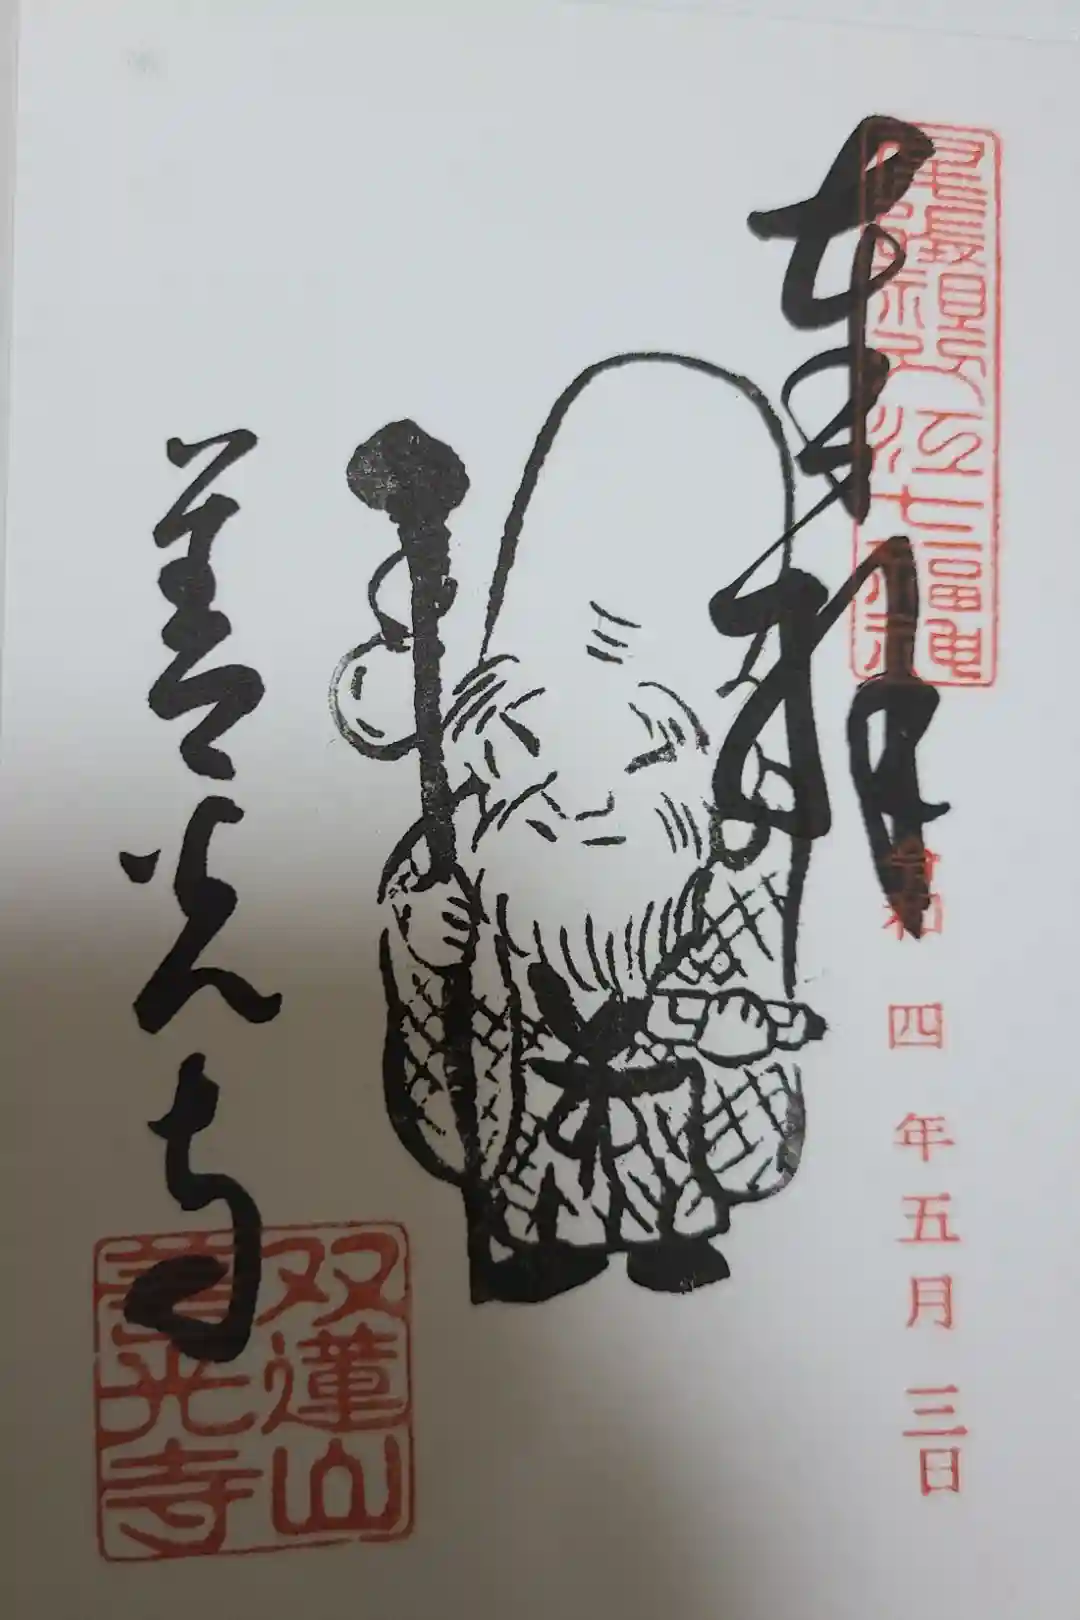 奉拝
江七福神
令和四年五月三日
善光寺
双蓮山
善光寺